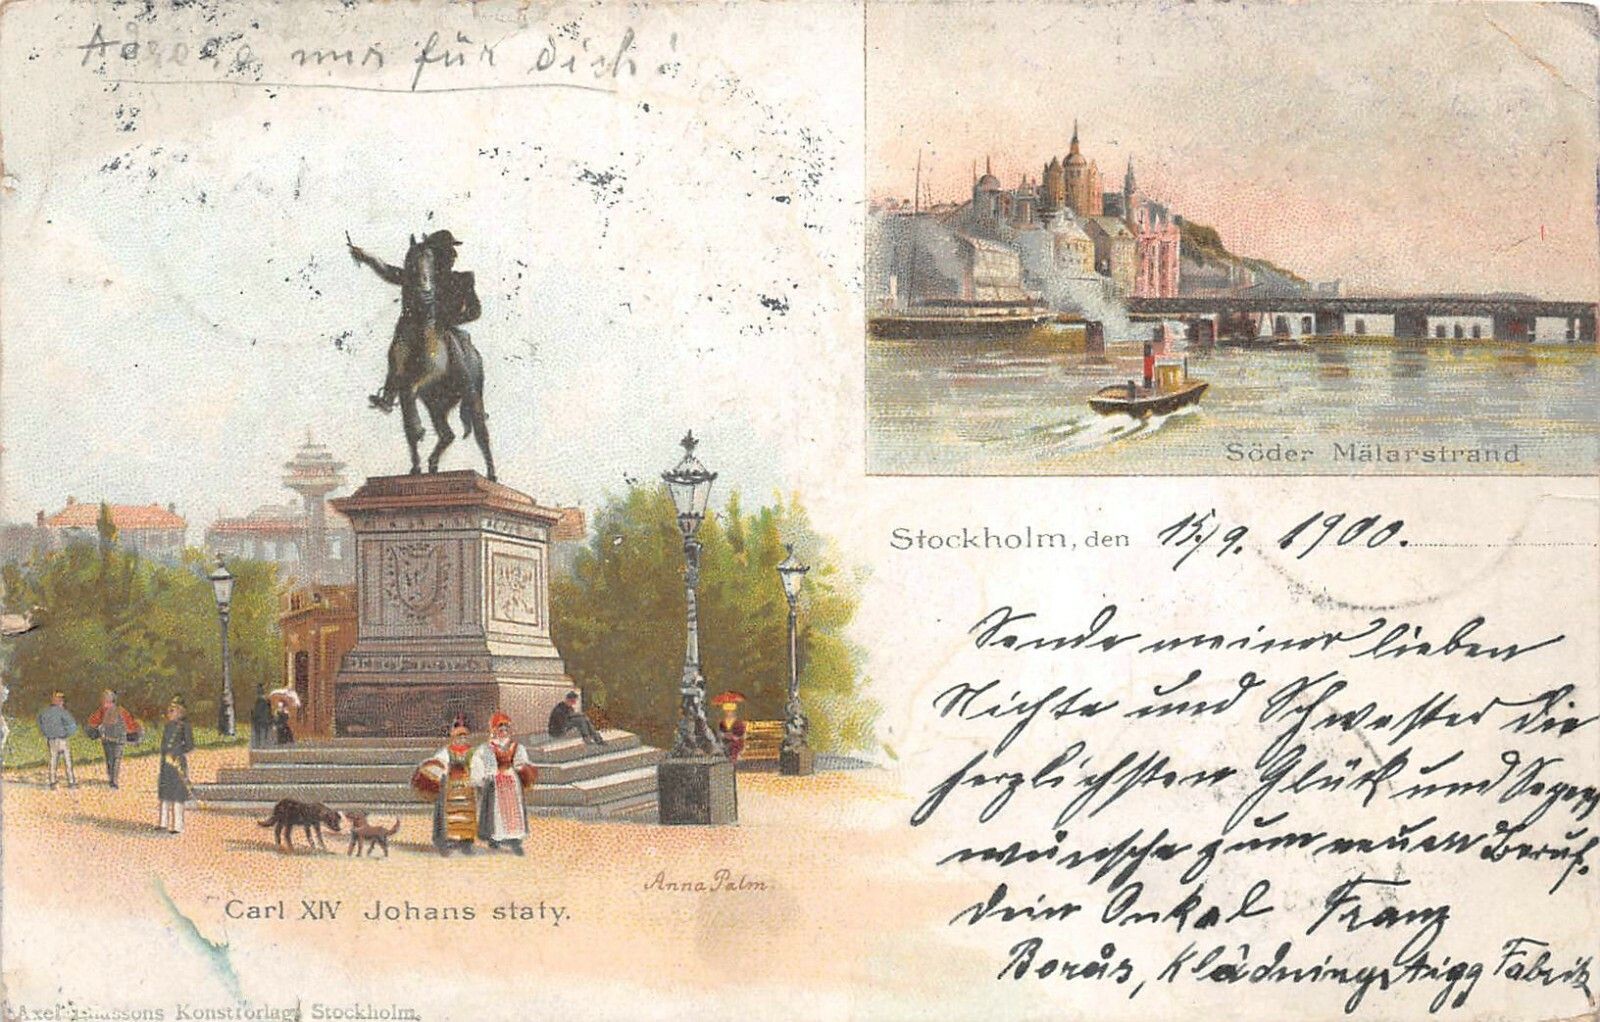 Adresse nur für Dich!
Söder Mälarstrand
Stockholm, den 15/9. 1900.
Sende meiner lieben
Nichte und Schwester die
herzlichsten Glück und Segens
wünsche zum neuen Beruf.
Dein Onkel Franz
Borås, Klädningstygg Fabrik
Anna Palm.
Carl XIV Johans staty.
Axel Eliassons Konstförlag, Stockholm.